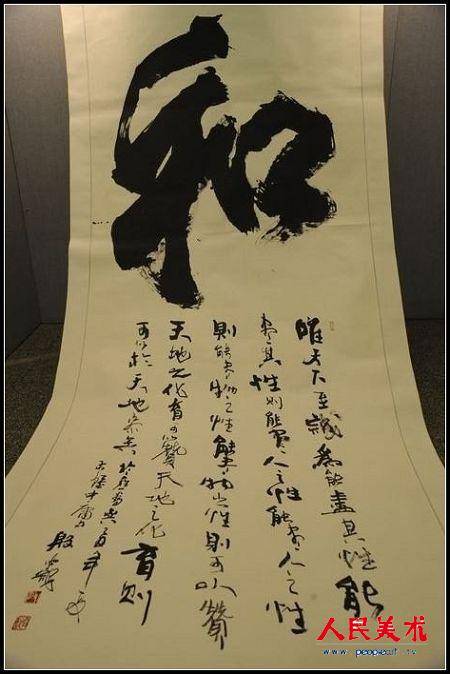 和
唯天下至誠為能盡其性能
盡其性则能盡人之性能盡人之性
則能盡物之性能盡物之性則可以贊
天地之化育可以贊天地之化育则
可以於天地參矣
人民美术
www.peopleart.tv